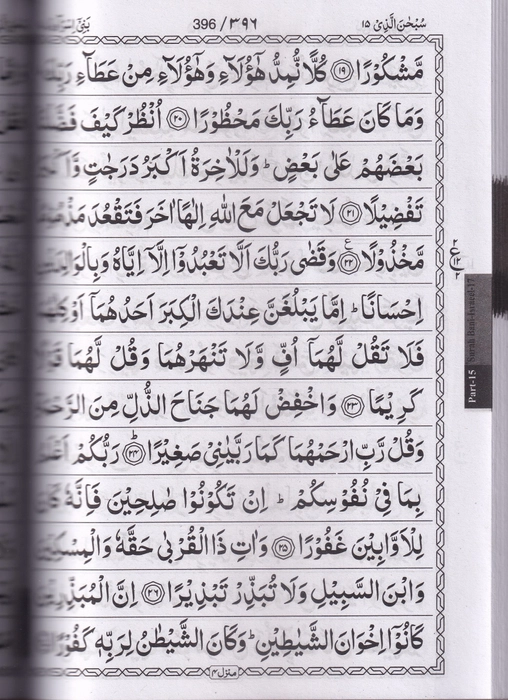 سُبْحٰنَ الَّذِىْ ١٥
396 / ٣٩٦
مَّشْكُوْرًا ﴿١٩﴾ كُلًّا نُّمِدُّ هٰٓؤُلَآءِ وَهٰٓؤُلَآءِ مِنْ عَطَآءِ
وَمَا كَانَ عَطَآءُ رَبِّكَ مَحْظُوْرًا ﴿٢٠﴾ اُنْظُرْ كَيْفَ
بَعْضَهُمْ عَلٰى بَعْضٍ ؕ وَلَلْاٰخِرَةُ اَكْبَرُ دَرَجٰتٍ
تَفْضِيْلًا ﴿٢١﴾ لَا تَجْعَلْ مَعَ اللّٰهِ اِلٰهًا اٰخَرَ فَتَقْعُدَ
مَّخْذُوْلًا ﴿٢٢﴾ ع وَقَضٰى رَبُّكَ اَلَّا تَعْبُدُوْٓا اِلَّآ اِيَّاهُ
اِحْسَانًا ؕ اِمَّا يَبْلُغَنَّ عِنْدَكَ الْكِبَرَ اَحَدُهُمَآ
فَلَا تَقُلْ لَّهُمَآ اُفٍّ وَّلَا تَنْهَرْهُمَا وَقُلْ لَّهُمَا
كَرِيْمًا ﴿٢٣﴾ وَاخْفِضْ لَهُمَا جَنَاحَ الذُّلِّ مِنَ
وَقُلْ رَّبِّ ارْحَمْهُمَا كَمَا رَبَّيٰنِىْ صَغِيْرًا ﴿٢٤﴾ ؕ رَبُّكُمْ
بِمَا فِىْ نُفُوْسِكُمْ ؕ اِنْ تَكُوْنُوْا صٰلِحِيْنَ فَاِنَّهٗ
لِلْاَوَّابِيْنَ غَفُوْرًا ﴿٢٥﴾ وَاٰتِ ذَا الْقُرْبٰى حَقَّهٗ
وَابْنَ السَّبِيْلِ وَلَا تُبَذِّرْ تَبْذِيْرًا ﴿٢٦﴾ اِنَّ
كَانُوْٓا اِخْوَانَ الشَّيٰطِيْنِ ؕ وَكَانَ الشَّيْطٰنُ لِرَبِّهٖ كَفُوْرًا
منزل ٤
Part-15 Surah Bani-Israeel-17